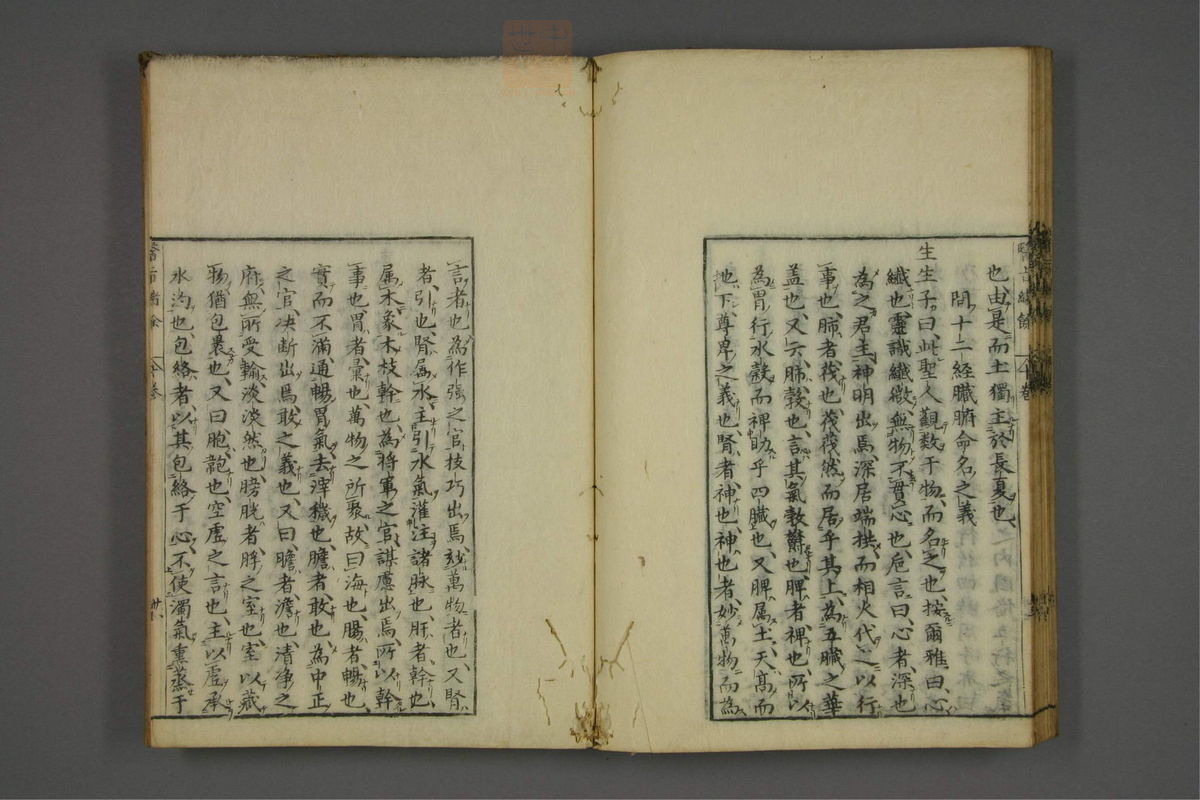 也、由是而土獨主於長夏也、
問十二経臓腑命名之義
生生子曰、此聖人觀数于物、而名之也、按爾雅曰、心
纎也、靈識纎微、無物不貫心也、巵言曰、心者、深也
為之君主、神明出焉、深居端拱、而相火代之以行
事也、肺者筏也、筏筏然而居乎其上、為五臓之華
盖也、又云、肺、敦也、言其氣敦欝也、脾者裨也、所以
為胃行水穀、而裨助乎四臓也、又脾属土、天高而
地下、尊卑之義也、腎者、神也、神也者、妙萬物而為
言者也、為作強之官、技巧出焉、妙萬物者也、又腎
者、引也、腎属水、主引水氣灌注諸脉也、肝者、幹也、
属木、象木枝幹也、為將軍之官、謀慮出焉、所以幹
事也、胃者、彙也、萬物之所聚、故曰海也、腸者暢也、
實而不滿、通暢胃氣、去滓穢也、膽者、敢也、為中正
之官、决断出焉、敢之義也、又曰、膽者、澹也、清净之
府、無所受輸、淡淡然也、膀胱者、脬之室也、室以藏
物、猶包裹也、又曰、胞、匏也、空虚之言也、主以虚承
水沟也、包絡者、以其包絡于心、不使濁氣熏蒸于
醫旨緒餘
卷